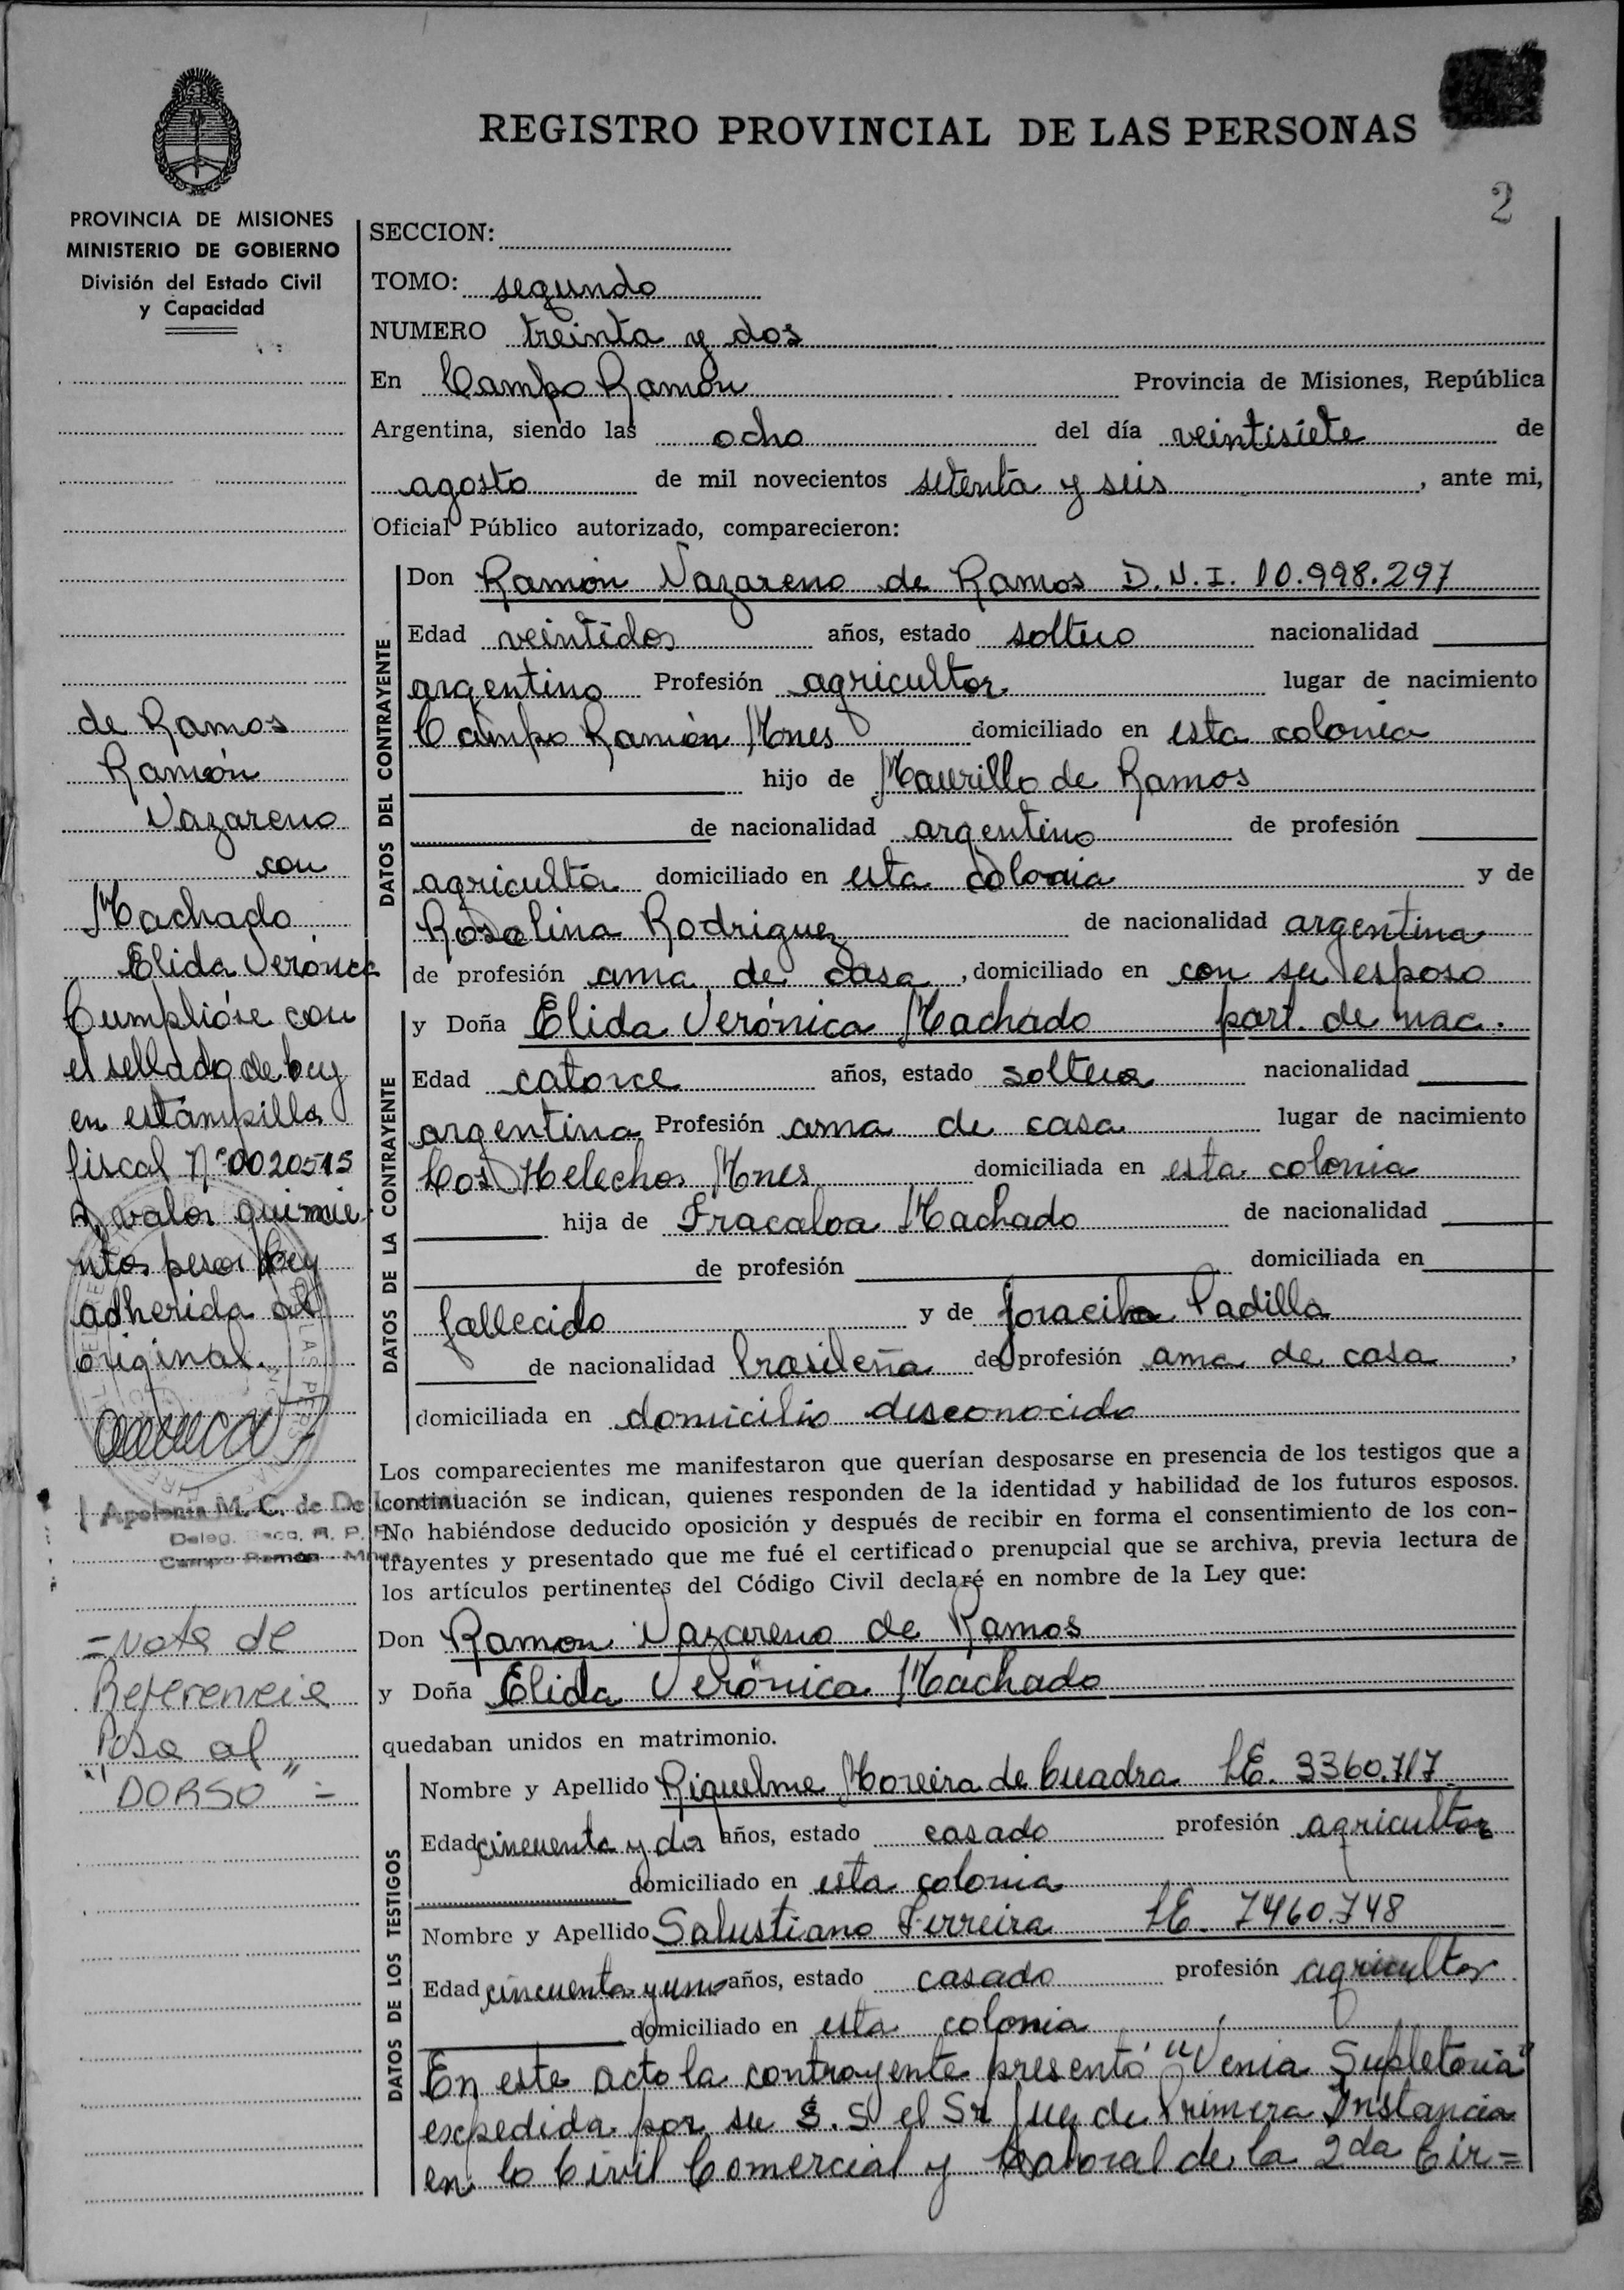 REGISTRO PROVINCIAL DE LAS PERSONAS
2
PROVINCIA DE MISIONES
MINISTERIO DE GOBIERNO
División del Estado Civil
y Capacidad
de Ramos
Ramón
Nazareno
con
Machado
Elida Verónica
Cumplióse con
el sellado de ley
en estampilla
fiscal Nº 0020515
A, valor quinie
ntos pesos ley
adherida al
original.
Apolonia M. C. de De
Deleg. R. P. P.
Campo Ramón - Mnes.
=Nota de
Referencia
Pasa al
"DORSO"=
SECCION:
TOMO: segundo
NUMERO treinta y dos
En Campo Ramón Provincia de Misiones, República
Argentina, siendo las ocho del día veintisiete de
agosto de mil novecientos setenta y seis, ante mi,
Oficial Público autorizado, comparecieron:
DATOS DEL CONTRAYENTE
Don Ramón Nazareno de Ramos D.N.I. 10.998.297
Edad veintidos años, estado soltero nacionalidad
argentino Profesión agricultor lugar de nacimiento
Campo Ramón Mnes domiciliado en esta colonia
hijo de Maurillo de Ramos
de nacionalidad argentino de profesión
agricultor domiciliado en esta colonia y de
Rosalina Rodriguez de nacionalidad argentina
de profesión ama de casa, domiciliado en con su esposo
DATOS DE LA CONTRAYENTE
y Doña Elida Verónica Machado part. de nac.
Edad catorce años, estado soltera nacionalidad
argentina Profesión ama de casa lugar de nacimiento
Los Helechos Mnes domiciliada en esta colonia
hija de Fracaloa Machado de nacionalidad
de profesión domiciliada en
fallecido y de Joracila Padilla
de nacionalidad brasileña de profesión ama de casa,
domiciliada en domicilio desconocido
Los comparecientes me manifestaron que querían desposarse en presencia de los testigos que a
continuación se indican, quienes responden de la identidad y habilidad de los futuros esposos.
No habiéndose deducido oposición y después de recibir en forma el consentimiento de los con-
trayentes y presentado que me fué el certificado prenupcial que se archiva, previa lectura de
los artículos pertinentes del Código Civil declaré en nombre de la Ley que:
Don Ramon Nazareno de Ramos
y Doña Elida Verónica Machado
quedaban unidos en matrimonio.
DATOS DE LOS TESTIGOS
Nombre y Apellido Riquelme Moreira de Cuadra L.E. 3360.717
Edad cincuenta y dos años, estado casado profesión agricultor
domiciliado en esta colonia
Nombre y Apellido Salustiano Ferreira L.E. 7460.748
Edad cincuenta y uno años, estado casado profesión agricultor
domiciliado en esta colonia
En este acto la contrayente presentó "Venia Supletoria"
expedida por su S.S el Sr Juez de Primera Instancia
en lo Civil Comercial y Laboral de la 2da Cir=